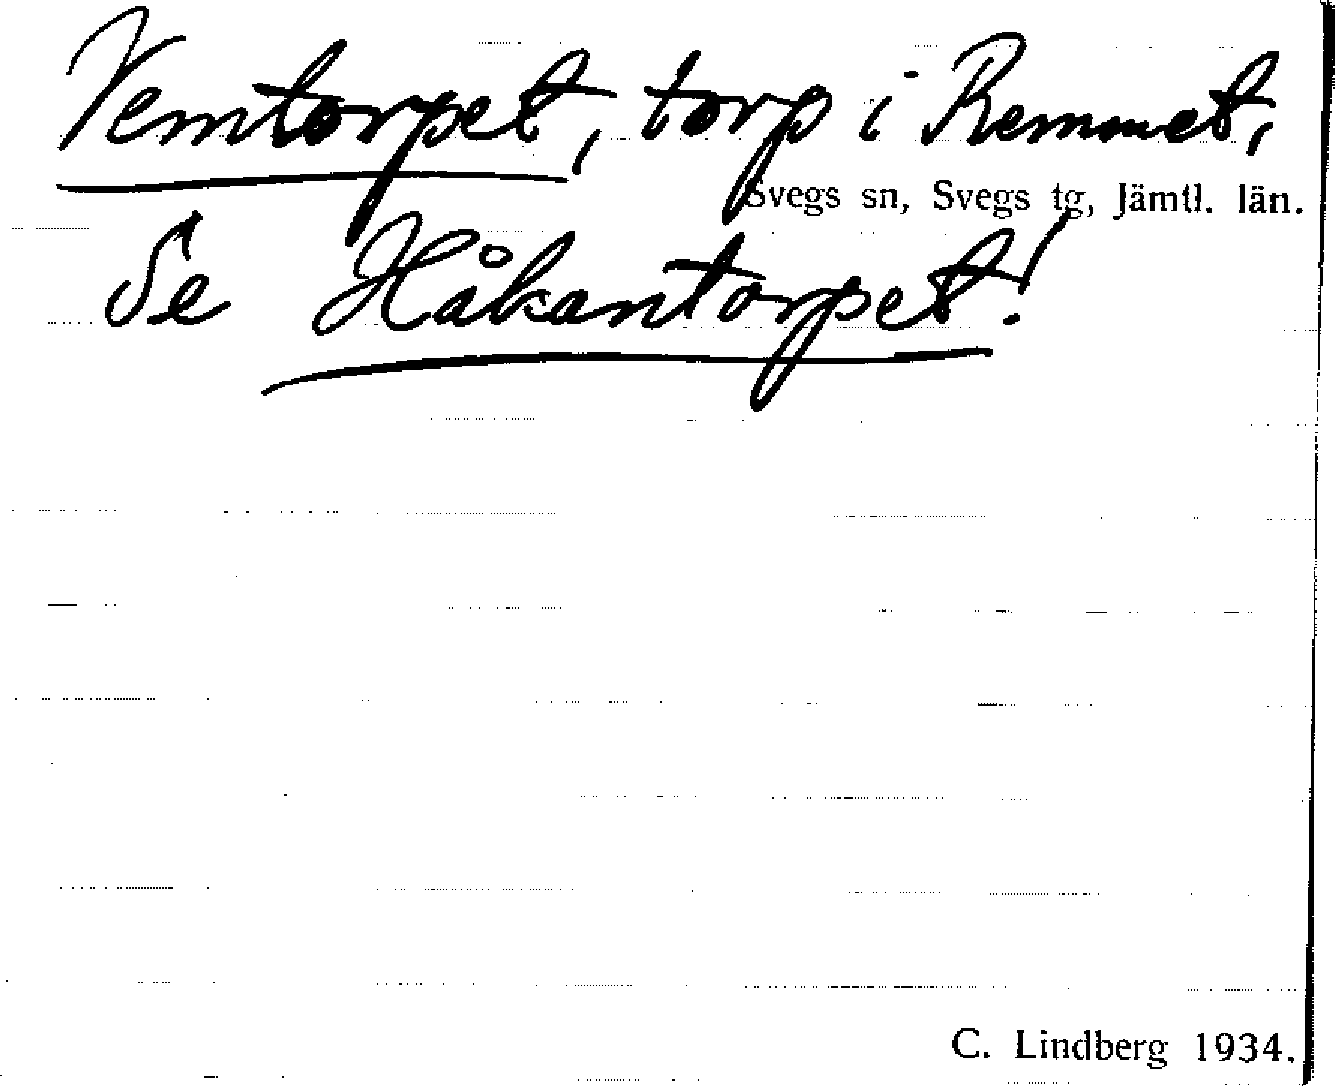 Vemtorpet, torp i Remmet,
Svegs sn, Svegs tg, Jämtl. län.
Se Håkantorpet!
C. Lindberg 1934.